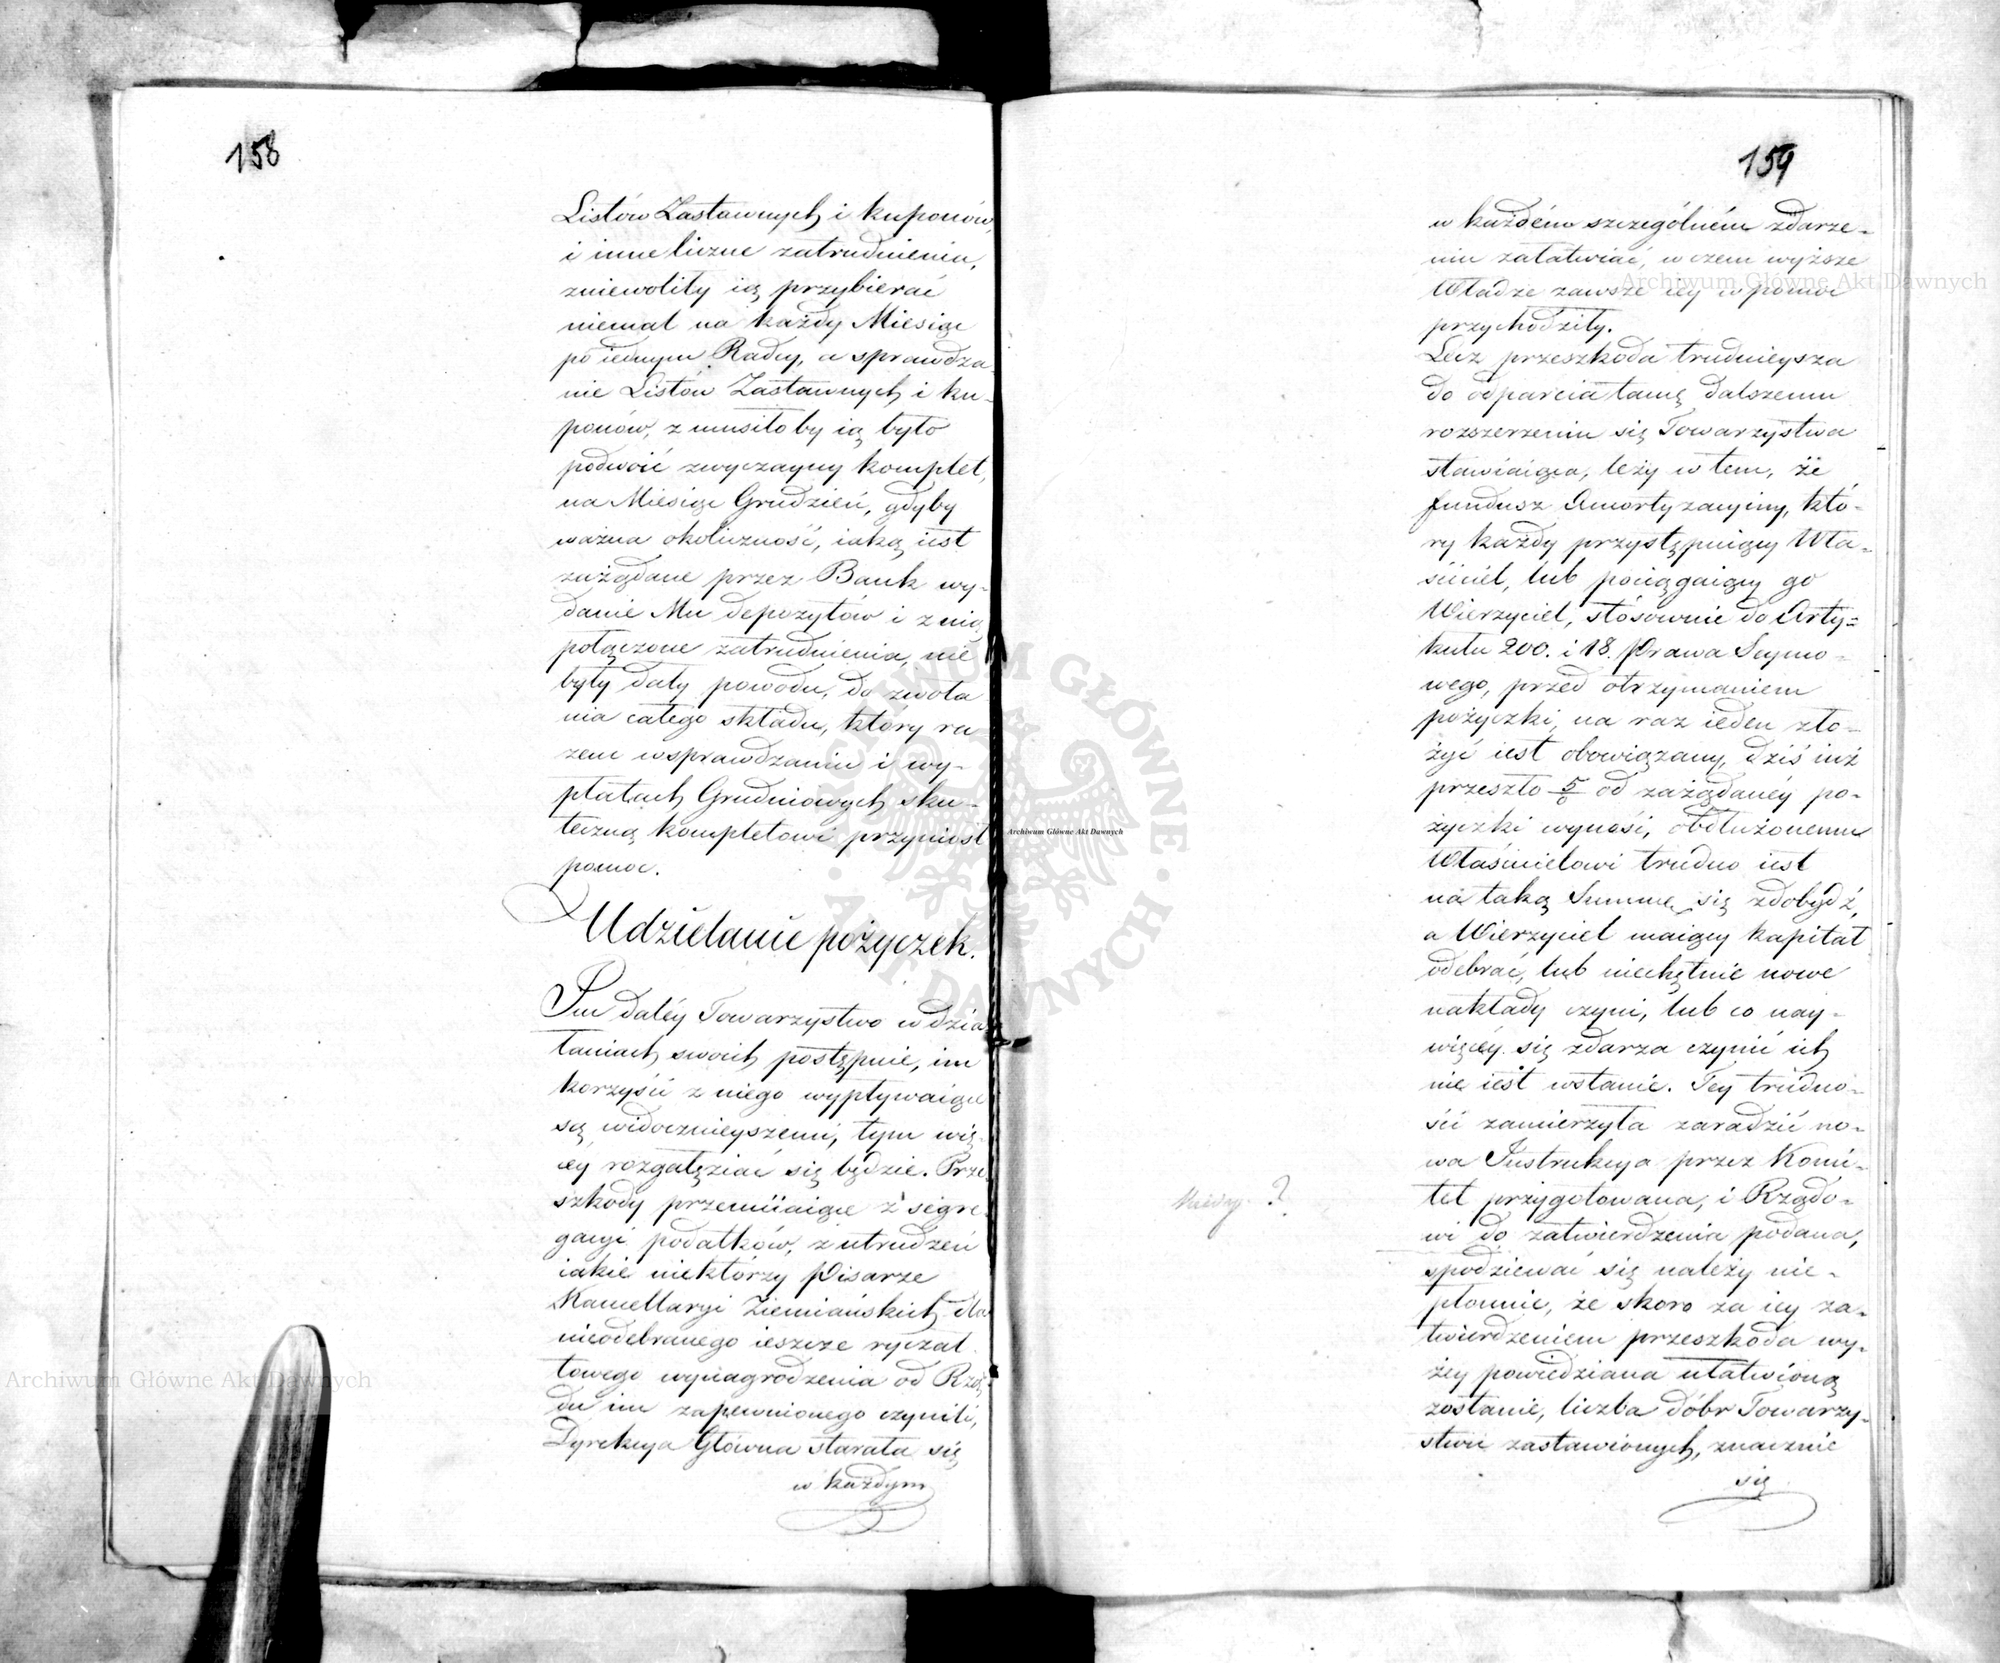 158
Listów Zastawnych i kuponów,
i inne liczne zatrudnienia,
zniewoliły ią przybierać
niemal na każdy Miesiąc
po iednym Radcy, a sprawdza-
nie Listów Zastawnych i ku-
ponów, zmusiłoby ią było
podwoić zwyczayny komplet,
na Miesiąc Grudzień, gdyby
ważna okoliczność, iaką iest
zażądane przez Bank wy-
danie Mu depozytów i z nią
połączone zatrudnienia, nie
były dały powodu, do zwoła
nia całego składu, który ra-
zem w sprawdzaniu i wy-
płatach Grudniowych sku-
teczną kompletowi przyniósł
pomoc.
Udzielanie pożyczek.
Im daléy Towarzystwo w dzia
łaniach swoich postępuie, im
korzyści z niego wypływaiące
są widocznieyszemi, tym wię-
cey rozgałęziać się będzie. Prze-
szkody przemiiaiące z segre-
gacyi podatków, z utrudzeń
iakie niektórzy Pisarze
Kancellaryi Ziemiańskich dla
nieodebranego ieszcze ryczał-
towego wynagrodzenia od Rzą-
du im zapewnionego czynili,
Dyrekcya Główna starała się
w każdym
159
w każdém szczególném zdarze-
niu załatwiać, w czem wyższe
Władze zawsze iey w pomoc
przychodziły.
Lecz przeszkoda trudnieysza
do odparcia tamę dalszemu
rozszerzeniu się Towarzystwa
stawiaiąca, leży w tem, że
fundusz Amortyzacyiny, któ-
ry każdy przystępuiący Wła-
ściciel, lub pociągaiący go
Wierzyciel, stósownie do Arty-
kułu 200. i 18. Prawa Seymo-
wego, przed otrzymaniem
pożyczki, na raz ieden zło-
żyć iest obowiązany, dziś iuż
przeszło 5/0 od zażądanéy po-
życzki wynosi, obdłużonemu
Właścicielowi trudno iest
na taką Summę się zdobydź,
a Wierzyciel maiący kapitał
odebrać, lub niechętnie nowe
nakłady czyni, lub co nay-
więcéy się zdarza czynić ich
nie iest wstanie. Tey trudno-
ści zamierzyła zaradzić no-
wa Instrukcya przez Komi-
tet przygotowana, i Rządo-
wi do zatwierdzenia podana,
spodziewać się należy nie-
płonnie, że skoro za iey za-
twierdzeniem przeszkoda wy-
żey powiedziana ułatwioną
zostanie, liczba dóbr Towarzy-
stwu zastawionych, znacznie
się
kiedy ?
Archiwum Główne Akt Dawnych
Archiwum Główne Akt Dawnych
Archiwum Główne Akt Dawnych
ARCHIWUM GŁÓWNE · AKT DAWNYCH ·